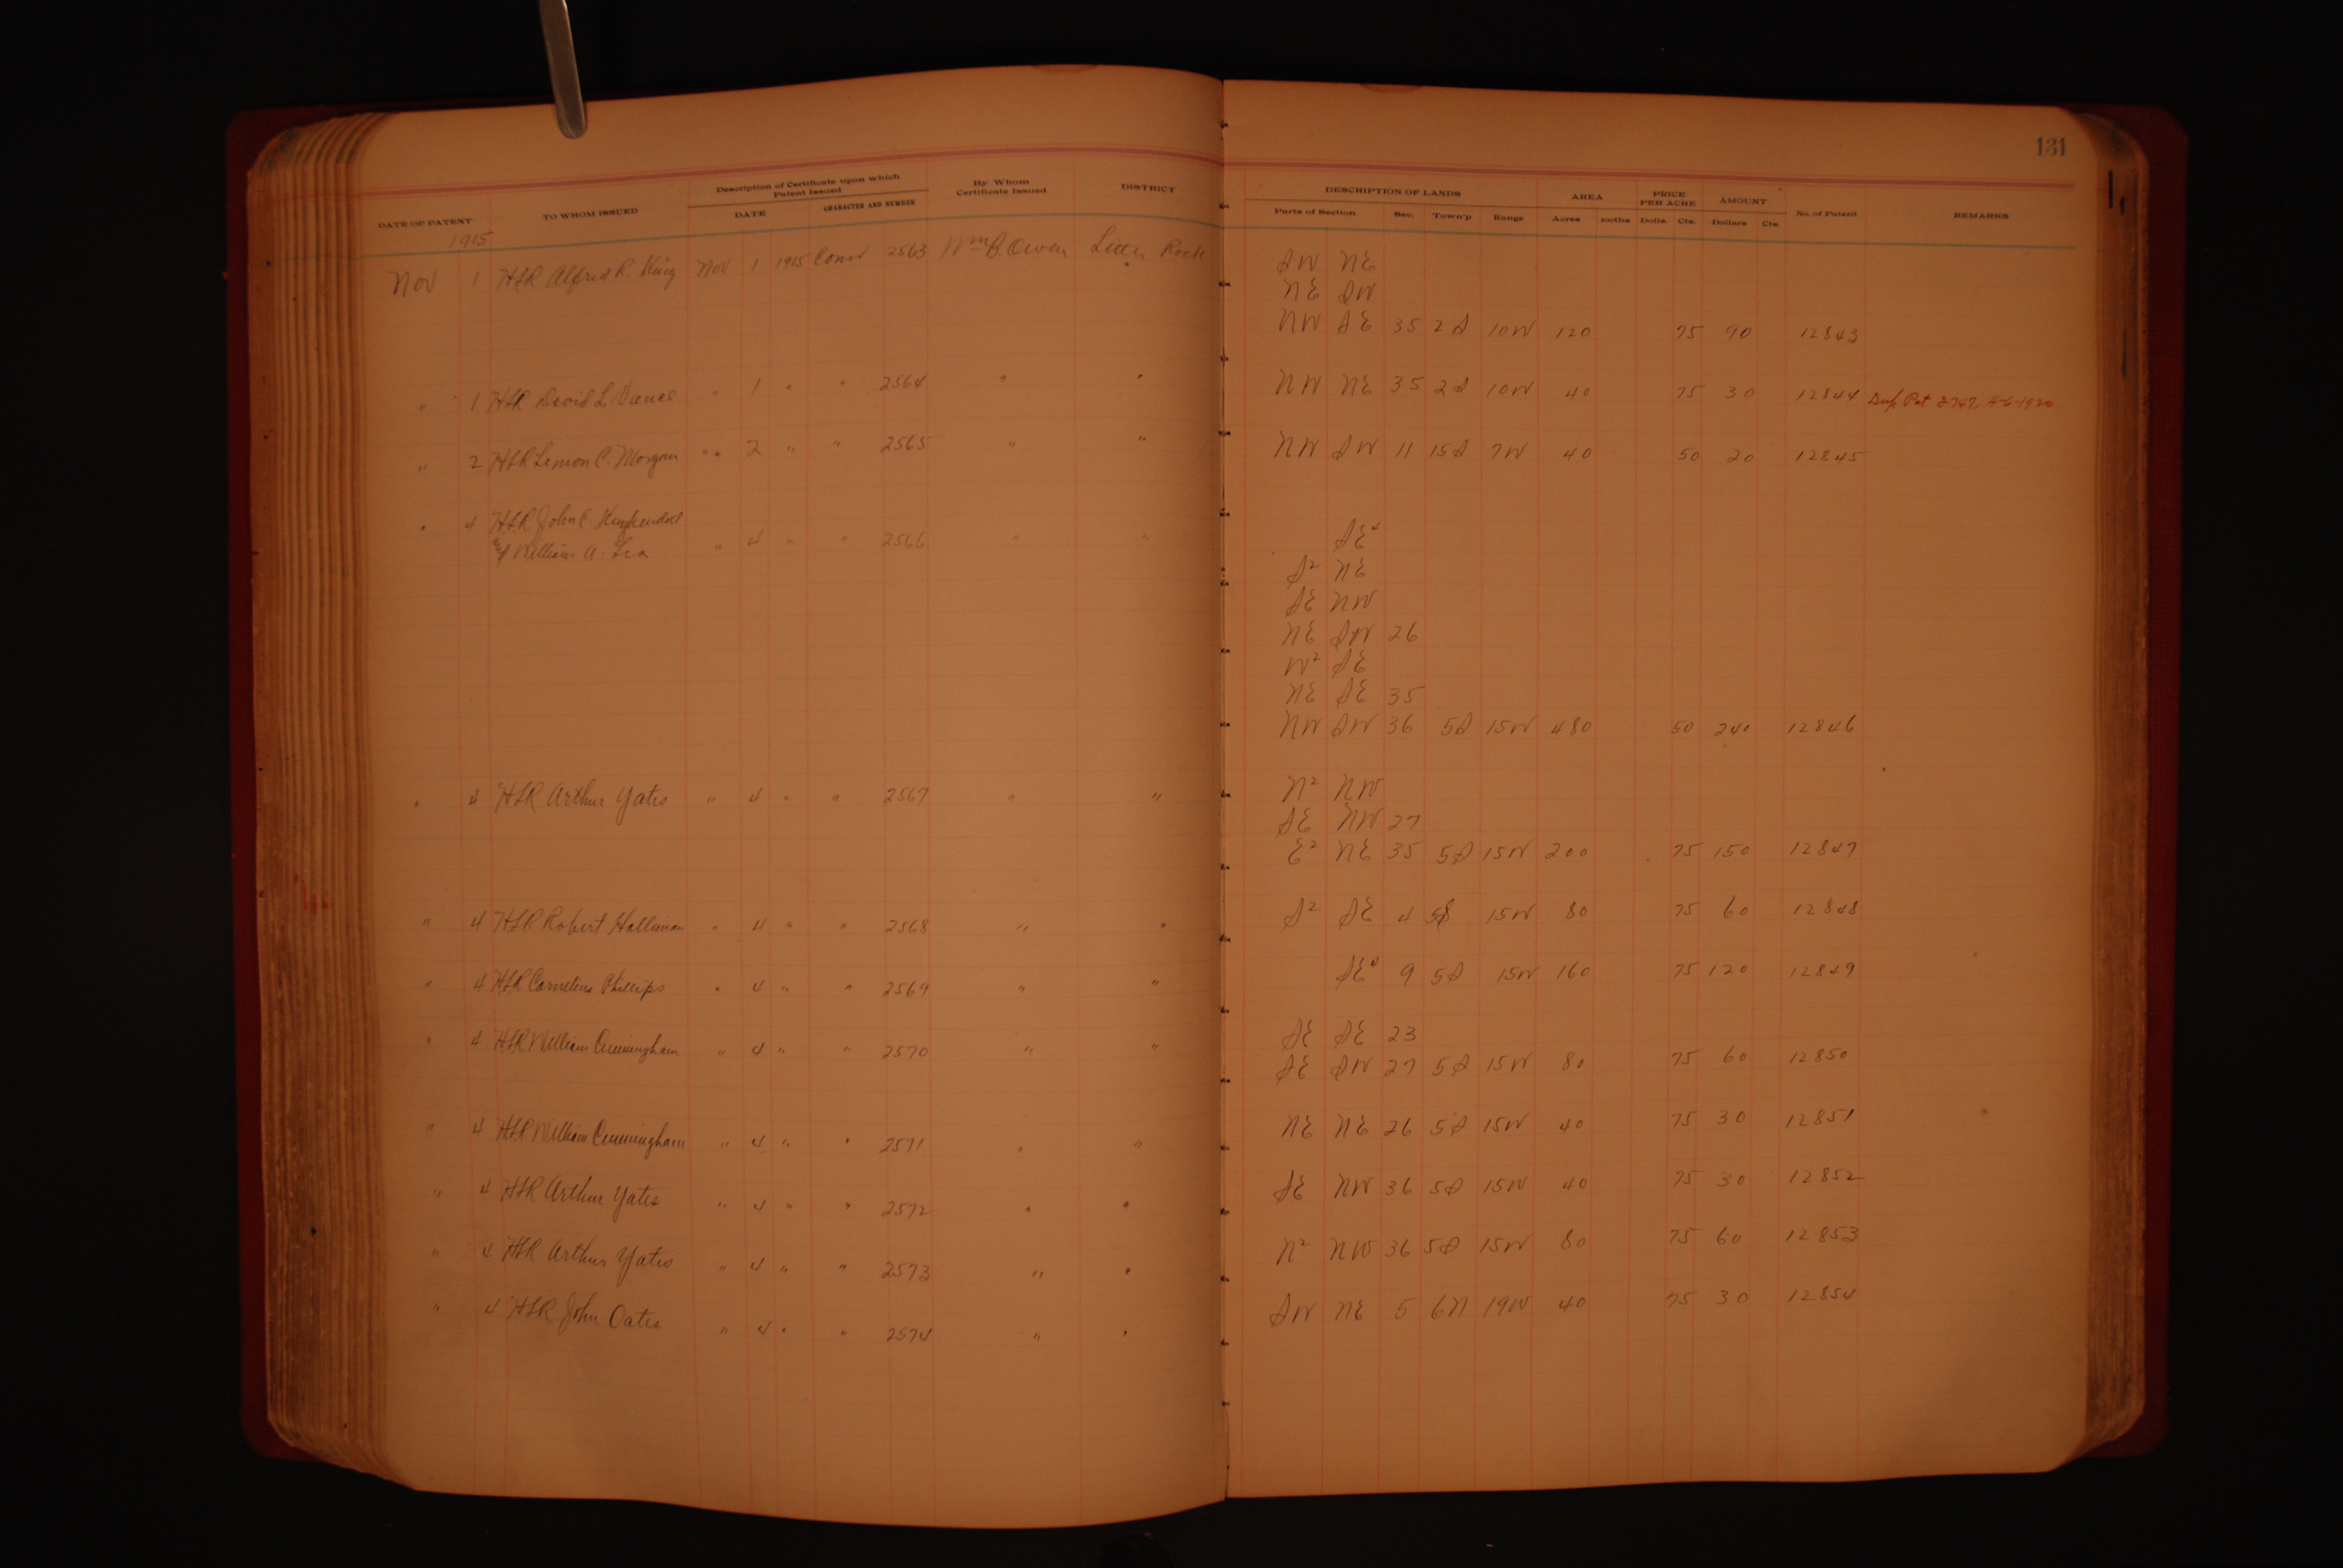 131
DATE OF PATENT TO WHOM ISSUED Description of Certificate upon which Patent Issued DATE CHARACTER AND NUMBER By Whom Certificate Issued DISTRICT DESCRIPTION OF LANDS Parts of Section Sec. Town'p Range AREA Acres 100ths PRICE PER ACRE Dolls. Cts. AMOUNT Dollars Cts. No. of Patent REMARKS
1915
Nov 1 H.L.R Alfred R. King Nov 1 1915 Conv 2563 Wm B. Owen Little Rock SW NE
NE SW
NW SE 35 2S 10W 120 75 90 12843
" 1 HLR David L. Vance " 1 " " 2564 " " NW NE 35 2S 10W 40 75 30 12844 Dup Pat 2747, 4-6-1920
" 2 HLR Lemon C. Morgan " 2 " " 2565 " " NW SW 11 15S 7W 40 50 20 12845
" 4 HLR John C Kuykendall
& William A. Lea " 4 " " 2566 " " SE4
S2 NE
SE NW
NE SW 26
W2 SE
NE SE 35
NW SW 36 5S 15W 480 50 240 12846
" 4 HLR Arthur Yates " 4 " " 2567 " " N2 NW
SE NW 27
E2 NE 35 5S 15W 200 75 150 12847
" 4 HLR Robert Holliman " 4 " " 2568 " " S2 SE 4 5S 15W 80 75 60 12848
" 4 HLR Cornelius Phillips " 4 " " 2569 " " SE4 9 5S 15W 160 75 120 12849
" 4 HLR William Cunningham " 4 " " 2570 " " SE SE 23
SE SW 27 5S 15W 80 75 60 12850
" 4 HLR William Cunningham " 4 " " 2571 " " NE NE 26 5S 15W 40 75 30 12851
" 4 HLR Arthur Yates " 4 " " 2572 " " SE NW 36 5S 15W 40 75 30 12852
" 4 HLR Arthur Yates " 4 " " 2573 " " N2 NW 36 5S 15W 80 75 60 12853
" 4 HLR John Oates " 4 " " 2574 " " SW NE 5 6N 19W 40 75 30 12854